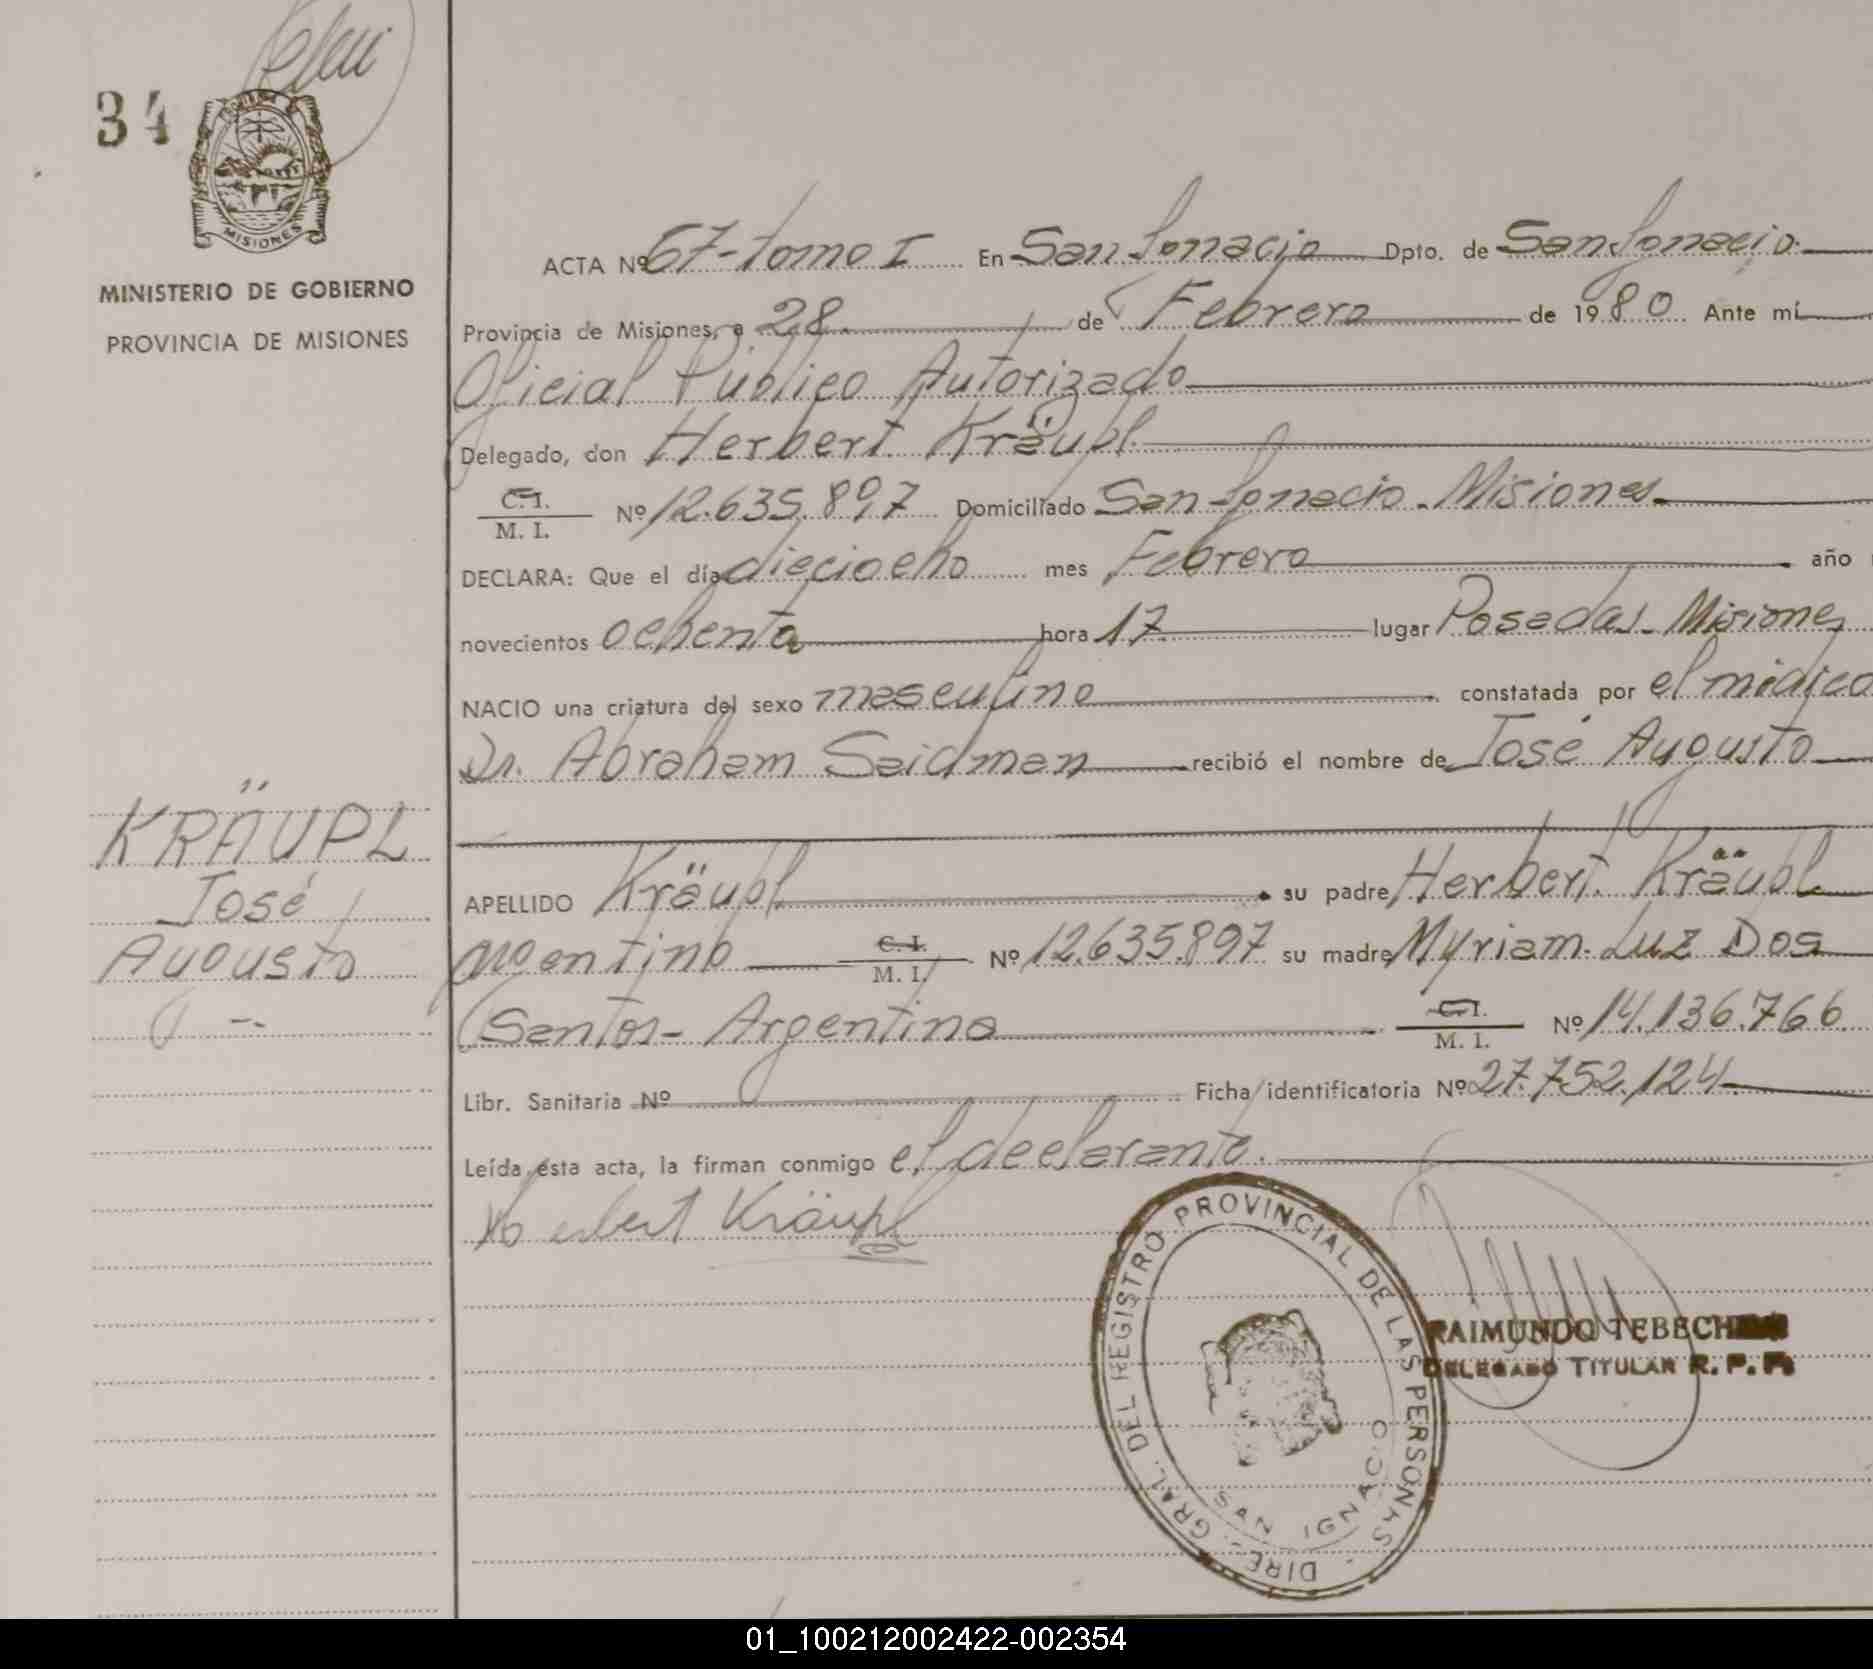 34
MISIONES
MINISTERIO DE GOBIERNO
PROVINCIA DE MISIONES
KRÄUPL
José
Augusto
ACTA Nº 67-tomo I En San Ignacio Dpto. de San Ignacio.
Provincia de Misiones, a 28 de Febrero de 1980 Ante mí
Oficial Público Autorizado
Delegado, don Herbert Kräupl
C.I. M. I. Nº 12.635.897 Domiciliado San Ignacio - Misiones
DECLARA: Que el día dieciocho mes Febrero año
novecientos ochenta hora 17 lugar Posadas - Misiones
NACIO una criatura del sexo masculino constatada por el médico
Dr. Abraham Saidman recibió el nombre de José Augusto
APELLIDO Kräupl su padre Herbert Kräupl
argentino C. I. M. I. Nº 12.635.897 su madre Myriam Luz Dos
Santos - Argentina C.I. M. I. Nº 14.136.766
Libr. Sanitaria Nº Ficha identificatoria Nº 27.752.124
Leída esta acta, la firman conmigo el declarante.
Herbert Kräupl
DIREC. GRAL. DEL REGISTRO PROVINCIAL DE LAS PERSONAS
SAN IGNACIO
RAIMUNDO
DELEGADO TITULAR R. P. P.
01_100212002422-002354